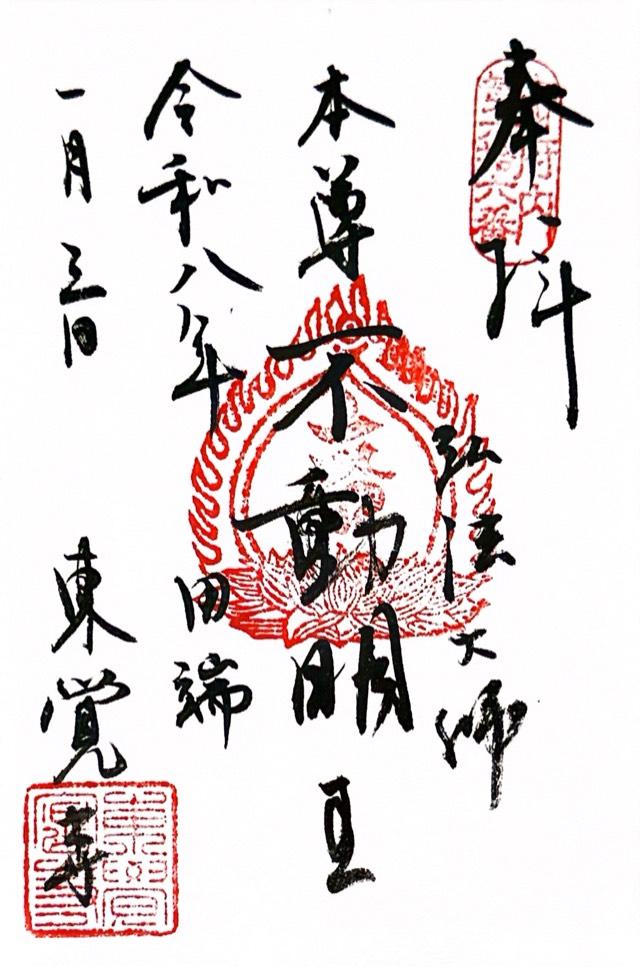 奉拝
弘法大師
本尊 不動明王
令和八年
田端
一月三日
東覚寺